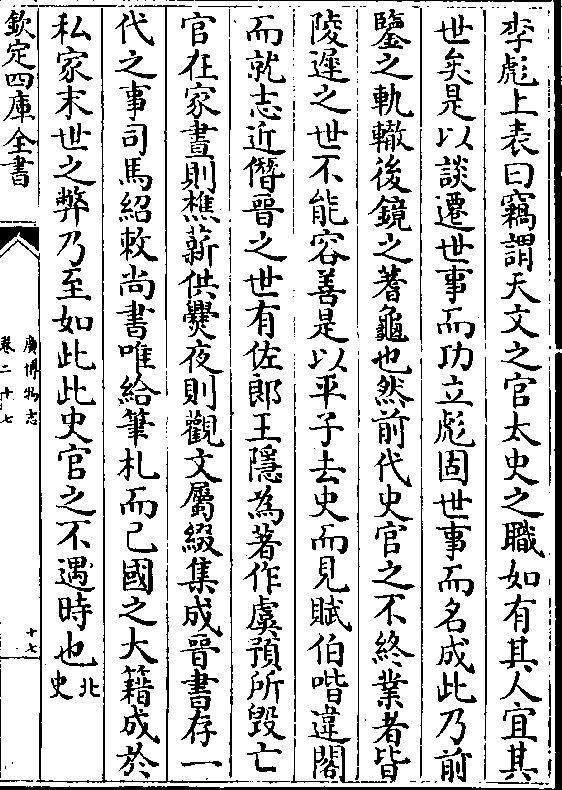 李彪上表曰竊謂天文之官太史之職如有其人宜其
世矣是以談遷世事而功立彪固世事而名成此乃前
鑒之軌轍後鏡之蓍龜也然前代史官之不終業者皆
陵遲之世不能容善是以平子去史而見賦伯喈違閣
而就志近僭晉之世有佐郎王隱為著作虞預所毀亡
官在家晝則樵薪供爨夜則觀文屬綴集成晉書存一
代之事司馬紹敕尚書唯給筆札而已國之大籍成於
私家末世之弊乃至如此此史官之不遇時也北史
欽定四庫全書
廣博物志
卷二十七
十七